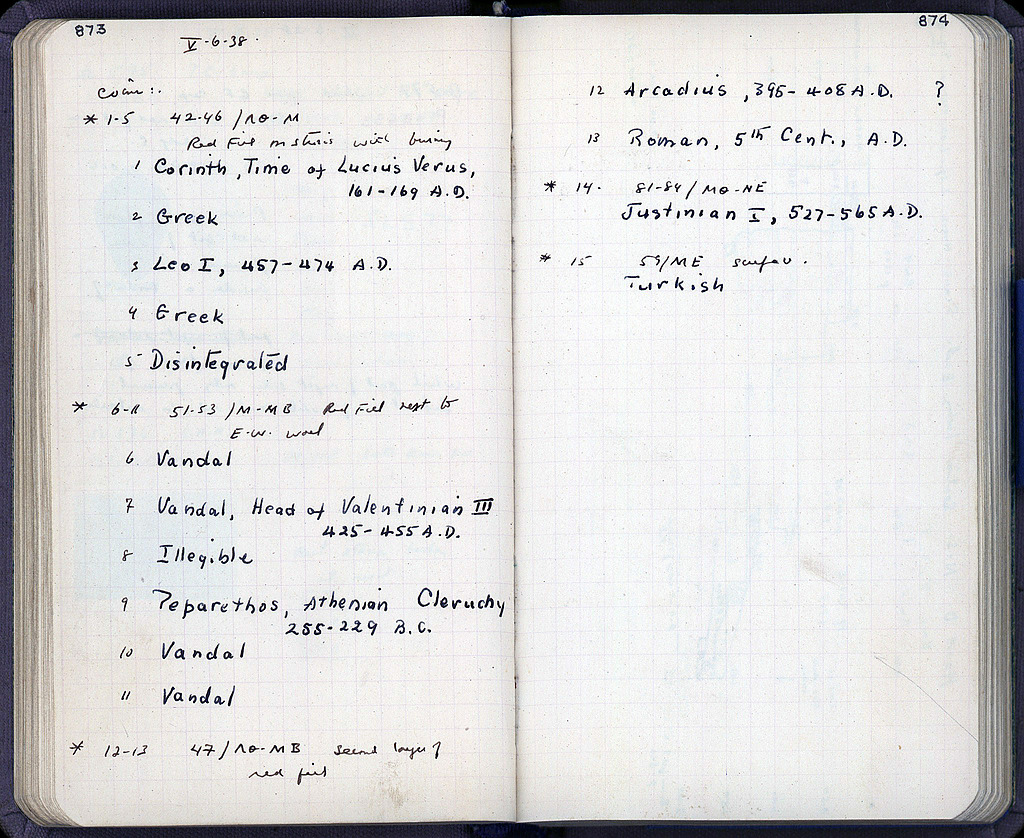 873
V-6-38.
Coins:
* 1-5 42-46/ΛΘ-Μ
Red Fill
1 Corinth, Time of Lucius Verus,
161-169 A.D.
2 Greek
3 Leo I, 457-474 A.D.
4 Greek
5 Disintegrated
* 6-11 51-53/Μ-ΜΒ Red Fill next to
E-W. wall
6 Vandal
7 Vandal, Head of Valentinian III
425-455 A.D.
8 Illegible
9 Peparethos, Athenian Cleruchy
255-229 B.C.
10 Vandal
11 Vandal
* 12-13 47/ΛΘ-ΜΒ second layer of
red fill
874
12 Arcadius, 395-408 A.D. ?
13 Roman, 5th Cent., A.D.
* 14. 81-84/ΜΘ-ΝΕ
Justinian I, 527-565 A.D.
* 15 59/ΜΕ surface.
Turkish